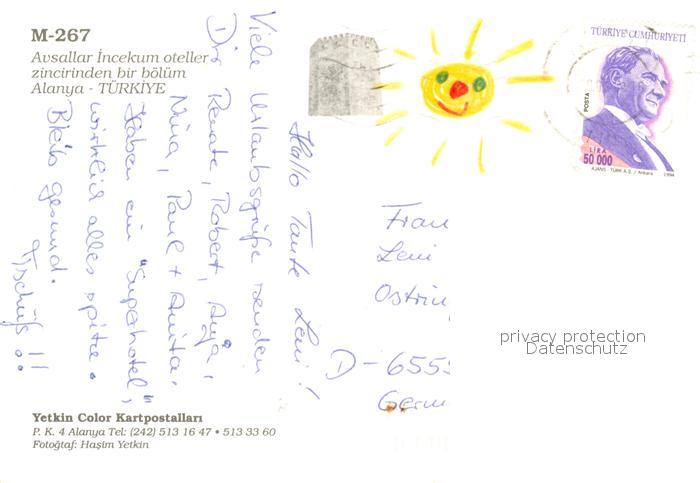 M-267
Avsallar İncekum oteller
zincirinden bir bölüm
Alanya - TÜRKİYE
Hallo Tante Leni!
Viele Urlaubsgrüße senden
Dir Renate, Robert, Anja,
Nina, Paul + Anita.
Haben ein "Superhotel",
wirklich alles spitze.
Bleib gesund.
Tschüß!!
TÜRKİYE CUMHURİYETİ
POSTA
LİRA
50 000
AJANS - TÜRK A.Ş. / Ankara
1994
Frau
Leni
Ostrin
D-6555
Germ
privacy protection
Datenschutz
Yetkin Color Kartpostalları
P. K. 4 Alanya Tel: (242) 513 16 47 • 513 33 60
Fotoğtaf: Haşim Yetkin